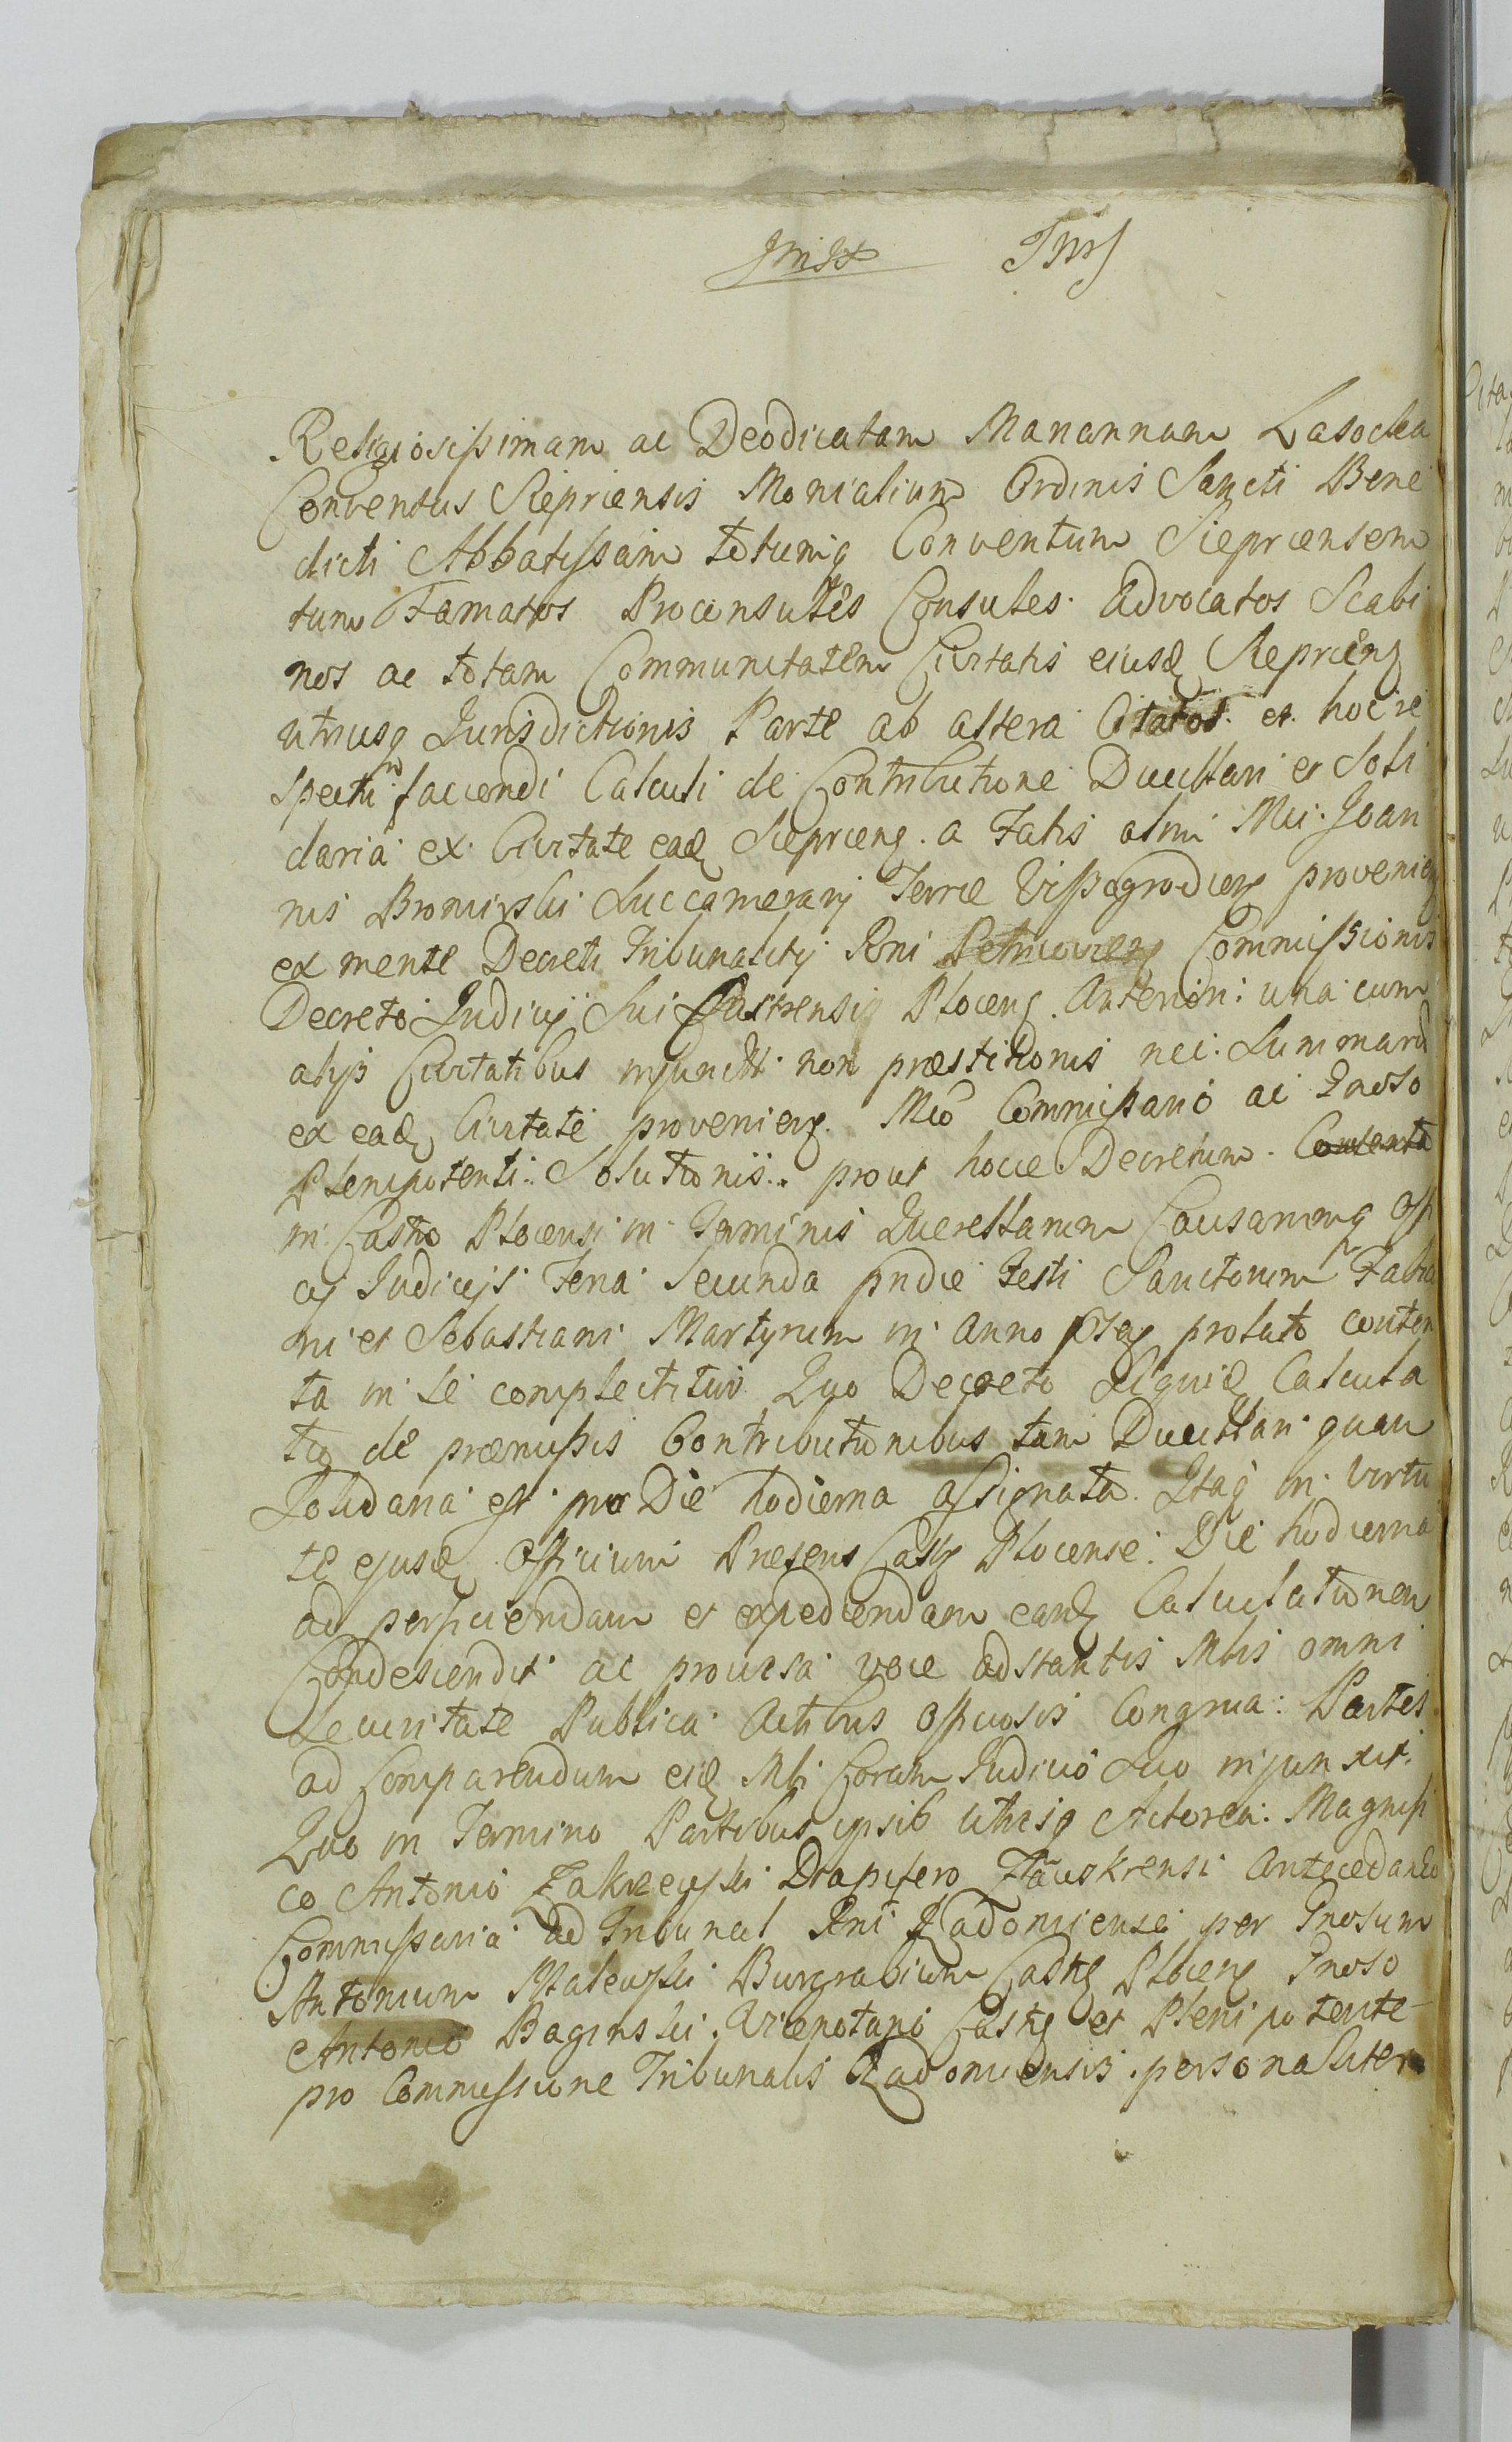 Religiosissimam ac Deodicatam Mariannam Lasocka
Conventus Sieprcensis Monialium Ordinis Sancti Bene
dicti Abbatissam totumq Conventum Sieprcensem
tum Famatos Proconsules Consules Advocatos Scabi
nos ac totam Communitatem Civitatis eiusd Sieprcens
utriusq Jurisdictionis Parte ab altera Citatos et hoc re
spectu faciendi Calculi de Contributione Ducillari et Soli
daria ex Civitate ead Sieprcens. a Fatis olim Mci. Joan
nis Bromirski Succamerarij Terrae Vissogrodiens provenien
ex mente Decreti Tribunalitij Rni Petricoviens Commissionis
Decreto Judicij Sui Castrensis Plocens. Anteriori una cum
alijs Civitatibus injunctt. non praestitionis nec. Summarum
ex ead Civitate proveniens. Mco Commissario ac Gnoso
Plenipotenti. Solutionis. prout hocce Decretum. Contenta
in Castro Plocensi in Terminis Querellarum Causarumq Offi
cij Judicijs Feria Secunda pridie Festi Sanctorum Fabia
ni et Sebastiani Martyrum in Anno prolato conten
ta in se complectitur. Quo Decreto Calcula
tio de praemissis Contributionibus tam Ducillari quam
Solidaria est pro Die hodierna assignata. Itaq in virtu
te ejusd Officium Praesens Castr Plocense. Die hodierna
ad perficiendam et expediendam eand Calculationem
Condescendit ac provisa voce adstantis Mlis omni
Securitate Publica Actibus Officiosis Congrua: Partes
ad Comparendum eid Mli Coram Judicio Suo injunxit.
Quo in Termino Partibus ipsis utrisq Actorea: Magnifi
co Antonio Zakrzewski Dapifero Antecedaneo
Commissaria ad Tribunal Rni Radomiense per Gnosum
Antonium Malewski Burgrabium Castr Plocens Gnoso
Antonio Baginski. Vicenotario Castr et Plenipotente
pro Commissione Tribunalis Radomiensis. personaliter